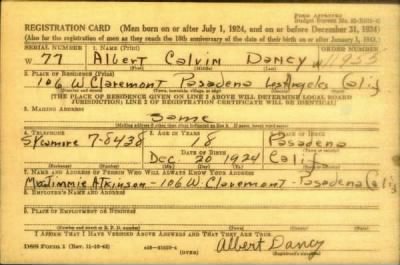 FORM APPROVED
REGISTRATION CARD (Men born on or after July 1, 1924, and on or before December 31, 1924)
(Also for the registration of men as they reach the 18th anniversary of the date of their birth on or after January 1, 1925.)
SERIAL NUMBER 1. NAME (Print) ORDER NUMBER
W 77 Albert Calvin Dancy 11955
(First) (Middle) (Last)
2. PLACE OF RESIDENCE (Print)
106 W Claremont Pasadena Los Angeles Calif
[THE PLACE OF RESIDENCE GIVEN ON LINE 2 ABOVE WILL DETERMINE LOCAL BOARD
JURISDICTION; LINE 2 OF REGISTRATION CERTIFICATE WILL BE IDENTICAL]
3. MAILING ADDRESS
Same
4. TELEPHONE 5. AGE IN YEARS 6. PLACE OF BIRTH
Sycamore 7-8438 18 Pasadena
DATE OF BIRTH
Dec. 20 1924 Calif
(Exchange) (Number) (Mo.) (Day) (Yr.)
7. NAME AND ADDRESS OF PERSON WHO WILL ALWAYS KNOW YOUR ADDRESS
Jimmie Atkinson - 106 W. Claremont - Pasadena Calif
8. EMPLOYER'S NAME AND ADDRESS
9. PLACE OF EMPLOYMENT OR BUSINESS
(Number and street or R. F. D. number) (Town) (County) (State)
I AFFIRM THAT I HAVE VERIFIED ABOVE ANSWERS AND THAT THEY ARE TRUE.
DSS Form 1 (OVER) Albert Dancy
(Registrant's signature)